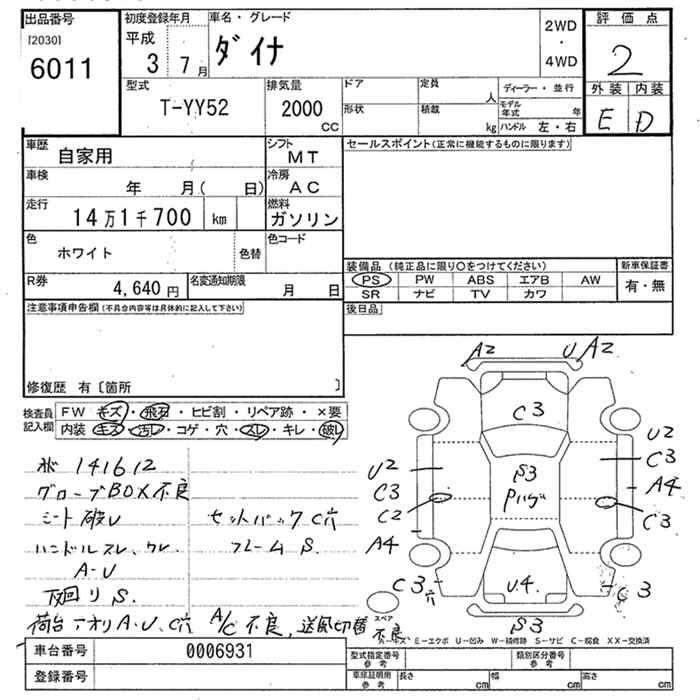 出品番号
[2030]
6011
初度登録年月
平成
3 7月
車名・グレード
ダイナ
2WD
・
4WD
評価点
2
外装 内装
E D
型式
T-YY52
排気量
2000
CC
ドア
形状
定員
人
積載
kg
ディーラー・並行
モデル年式 年
ハンドル 左・右
車歴
自家用
シフト
MT
車検
年 月( 日)
冷房
AC
走行
14万1千700 km
燃料
ガソリン
色
ホワイト
色替
色コード
R券
4,640 円
名変通知期限
月 日
セールスポイント(正常に機能するものに限ります)
装備品 (純正品に限り○をつけてください)
PS PW ABS エアB AW
SR ナビ TV カワ
新車保証書
有・無
後日品
注意事項申告欄(不具合内容等は具体的に記入して下さい)
修復歴 有〔箇所 〕
検査員記入欄
FW キズ・飛石・ヒビ割・リペア跡・×要
内装 キズ・汚レ・コゲ・穴・スレ・キレ・破レ
141612
グローブBOX不良
シート破レ
セットバックC穴
ハンドルスレ、
フレームS.
A-U
下回りS.
荷台アオリA・U、C穴 A/C不良、送風切替不良
A2 U A2
C3
U2
C3
C2
A4
S3
U2
C3
A4
C3
C3穴
U.4.
C3
S3
スペア
A-キズ E-エクボ U-凹み W-補修跡 S-サビ C-腐食 XX-交換済
車台番号
0006931
登録番号
型式指定番号 参考
類別区分番号 参考
車庫証明用 参考
長さ cm
幅 cm
高さ cm